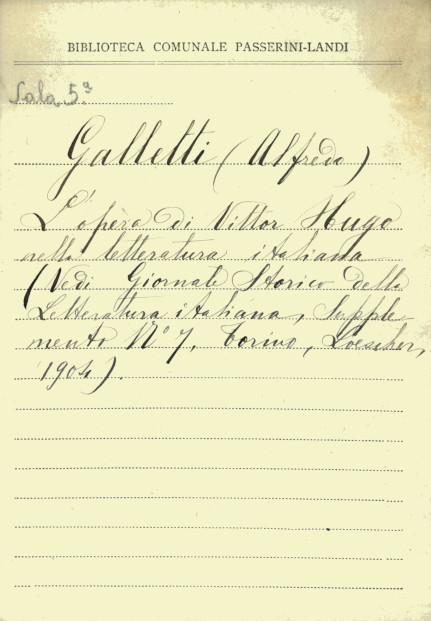 BIBLIOTECA COMUNALE PASSERINI-LANDI
Sala 5ª
Galletti (Alfredo)
L'opera di Vittor Hugo
nella letteratura italiana
(Vedi Giornale Storico della
Letteratura italiana, Supple-
mento Nº 7, Torino, Loescher,
1904).